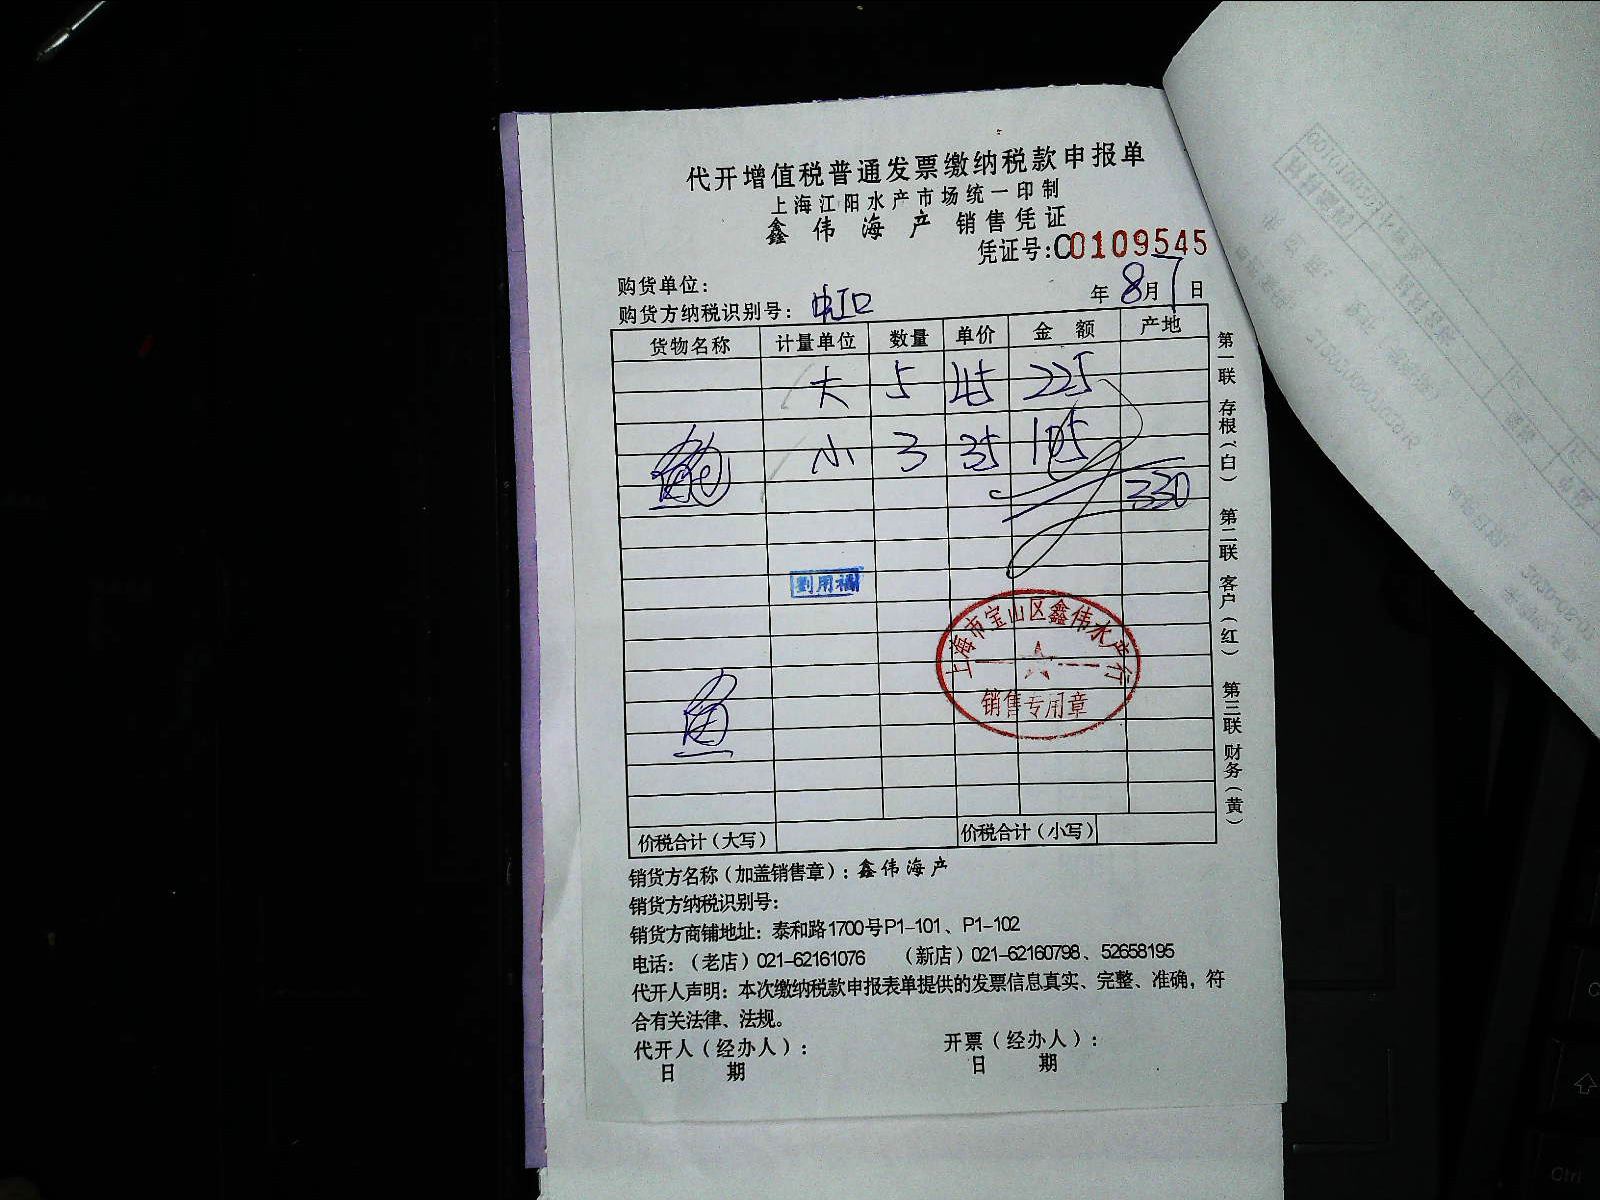 代开增值税普通发票缴纳税款申报单
上海江阳水产市场统一印制
鑫伟海产 销售凭证
凭证号:C0109545
购货单位:
年 8月7日
购货方纳税识别号: 虹口
货物名称 计量单位 数量 单价 金额 产地
大 5 45 225
小 3 35 105
330
劉用福
上海市宝山区鑫伟水产行
销售专用章
价税合计(大写) 价税合计(小写)
第一联 存根(白) 第二联 客户(红) 第三联 财务(黄)
销货方名称(加盖销售章):鑫伟海产
销货方纳税识别号:
销货方商铺地址:泰和路1700号P1-101、P1-102
电话:(老店)021-62161076 (新店)021-62160798、52658195
代开人声明:本次缴纳税款申报表单提供的发票信息真实、完整、准确,符
合有关法律、法规。
代开人(经办人): 开票(经办人):
日 期 日 期